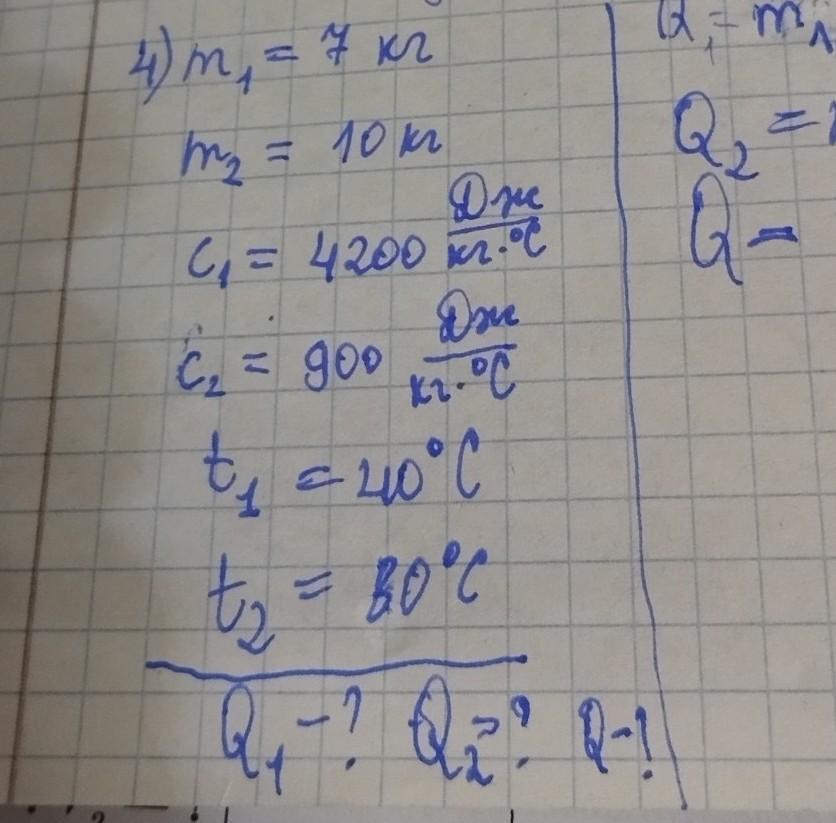 4) m₁ = 7 кг
m₂ = 10 кг
c₁ = 4200 Дж/кг·°C
c₂ = 900 Дж/кг·°C
t₁ = 40°C
t₂ = 80°C
Q₁ - ? Q₂ - ? Q - ?
Q₁ = m₁
Q₂ =
Q =